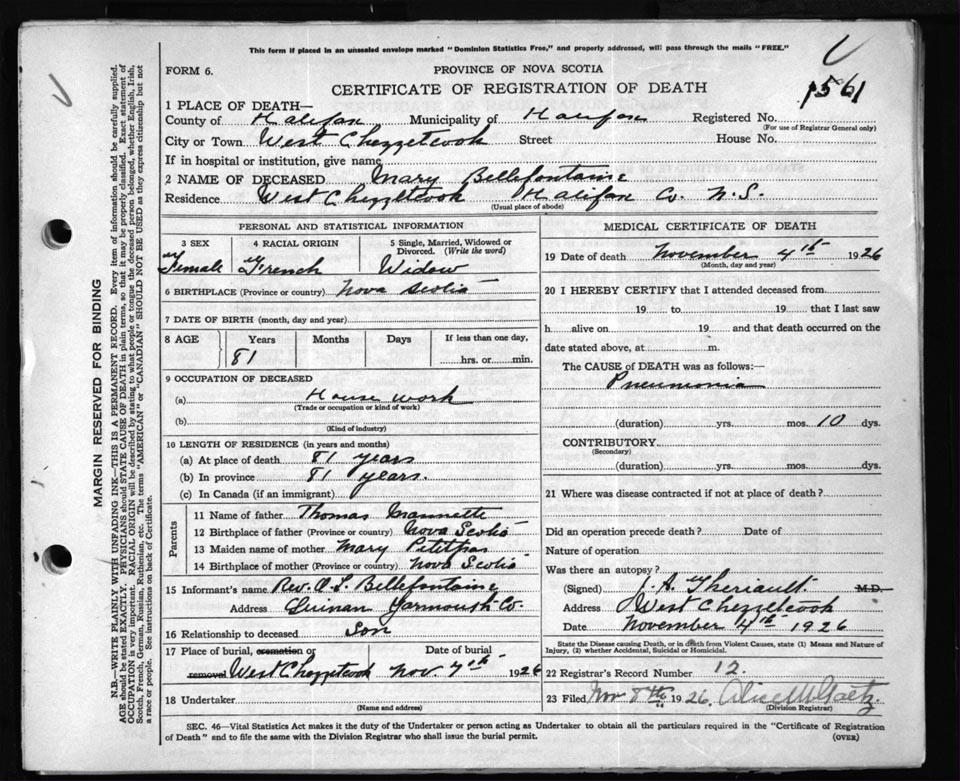 This form if placed in an unsealed envelope marked "Dominion Statistics Free," and properly addressed, will pass through the mails "FREE."
FORM 6.
PROVINCE OF NOVA SCOTIA
CERTIFICATE OF REGISTRATION OF DEATH
1561
1 PLACE OF DEATH—
County of Halifax Municipality of Halifax Registered No.
(For use of Registrar General only)
City or Town West Chezzetcook Street House No.
If in hospital or institution, give name
2 NAME OF DECEASED Mary Bellefontaine
Residence West Chezzetcook Halifax Co. N.S.
(Usual place of abode)
PERSONAL AND STATISTICAL INFORMATION
3 SEX 4 RACIAL ORIGIN 5 Single, Married, Widowed or Divorced. (Write the word)
Female French Widow
6 BIRTHPLACE (Province or country) Nova Scotia
7 DATE OF BIRTH (month, day and year)
8 AGE Years Months Days If less than one day,
81 hrs. or min.
9 OCCUPATION OF DECEASED
(a) House work
(Trade or occupation or kind of work)
(b)
(Kind of industry)
10 LENGTH OF RESIDENCE (in years and months)
(a) At place of death 81 years
(b) In province 81 years.
(c) In Canada (if an immigrant)
Parents
11 Name of father Thomas Mannette
12 Birthplace of father (Province or country) Nova Scotia
13 Maiden name of mother Mary Petitpas
14 Birthplace of mother (Province or country) Nova Scotia
15 Informant's name Rev. A. S. Bellefontaine
Address Quinan Yarmouth Co.
16 Relationship to deceased Son
17 Place of burial, cremation or removal Date of burial
West Chezzetcook Nov. 7th 1926
18 Undertaker
(Name and address)
MEDICAL CERTIFICATE OF DEATH
19 Date of death November 4th 1926
(Month, day and year)
20 I HEREBY CERTIFY, that I attended deceased from
19 to 19 that I last saw
h alive on 19 and that death occurred on the
date stated above, at m.
The CAUSE of DEATH was as follows:—
Pneumonia
(duration) yrs. mos. 10 dys.
CONTRIBUTORY
(Secondary)
(duration) yrs. mos. dys.
21 Where was disease contracted if not at place of death?
Did an operation precede death? Date of
Nature of operation
Was there an autopsy?
(Signed) J. A. Theriault M.D.
Address West Chezzetcook
Date November 4th 1926
State the Disease causing Death, or in death from Violent Causes, state (1) Means and Nature of
Injury, (2) whether Accidental, Suicidal or Homicidal.
22 Registrar's Record Number 12.
23 Filed Nov 8th 1926. Alice M Gaetz.
(Division Registrar)
SEC. 46—Vital Statistics Act makes it the duty of the Undertaker or person acting as Undertaker to obtain all the particulars required in the "Certificate of Registration
of Death" and to file the same with the Division Registrar who shall issue the burial permit. (OVER)
MARGIN RESERVED FOR BINDING
N.B.—WRITE PLAINLY WITH UNFADING INK—THIS IS A PERMANENT RECORD. Every item of information should be carefully supplied.
AGE should be stated EXACTLY. PHYSICIANS should STATE CAUSE OF DEATH in plain terms, so that it may be properly classified. Exact statement of
OCCUPATION is very important. RACIAL ORIGIN will be described by stating to what people or tongue the deceased person belonged, whether English, Irish,
Scotch, French, German, Russian, Ruthenian, etc. The terms "AMERICAN" or "CANADIAN" SHOULD NOT BE USED as they express citizenship but not
a race or people. See instructions on back of Certificate.